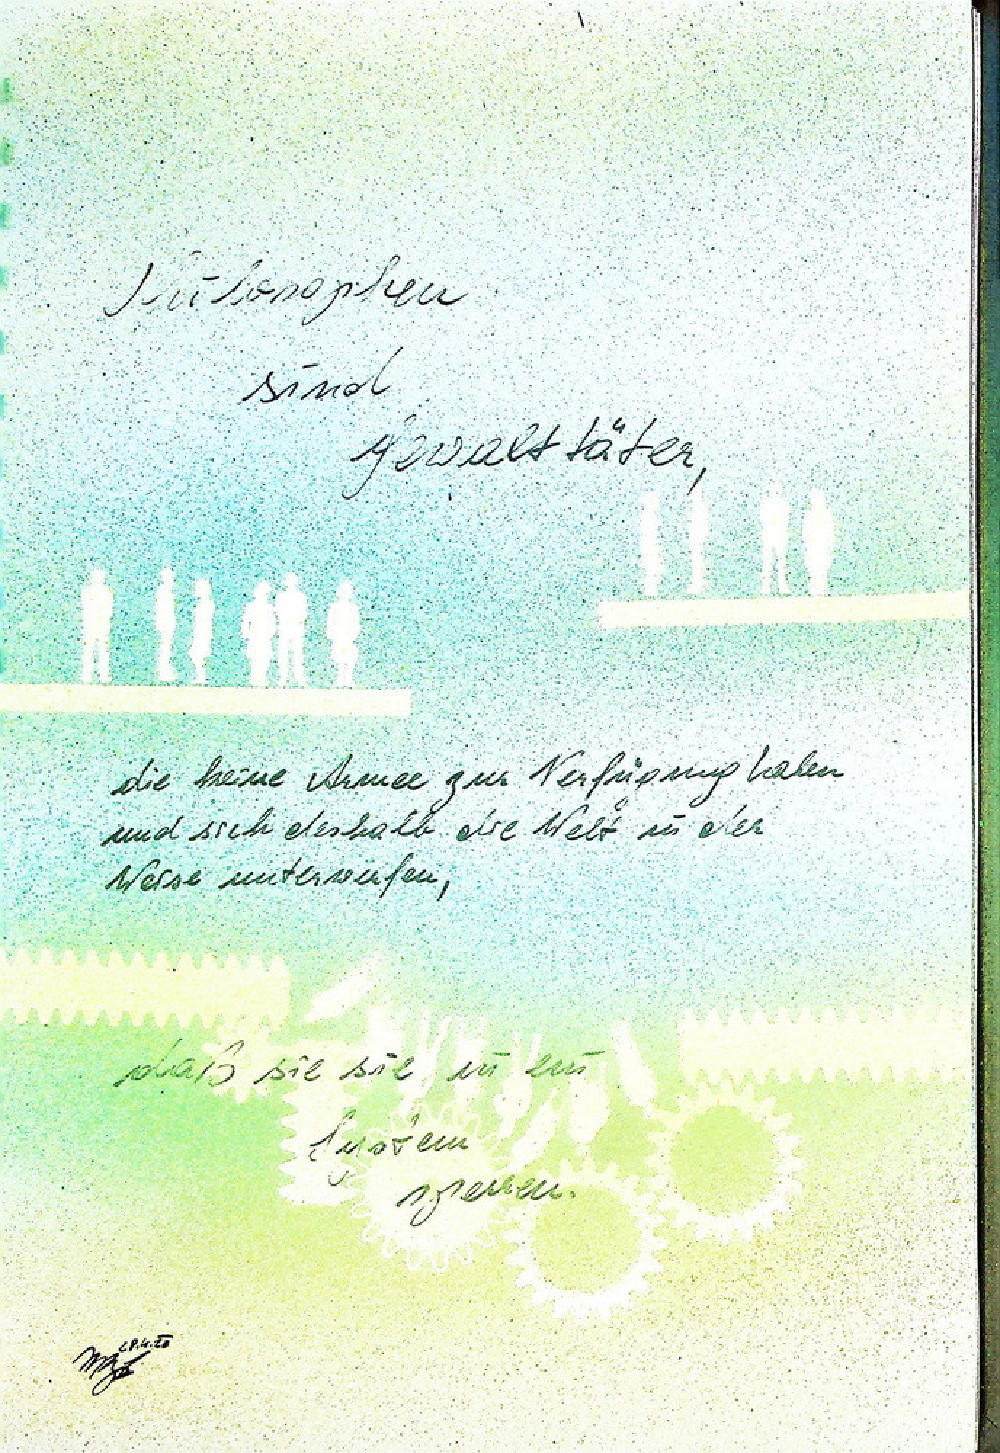 Philosophen
sind
Gewalttäter,
die keine Armee zur Verfügung haben
und sich deshalb die Welt in der
Weise unterwerfen,
daß sie sie in ein
System
sperren.